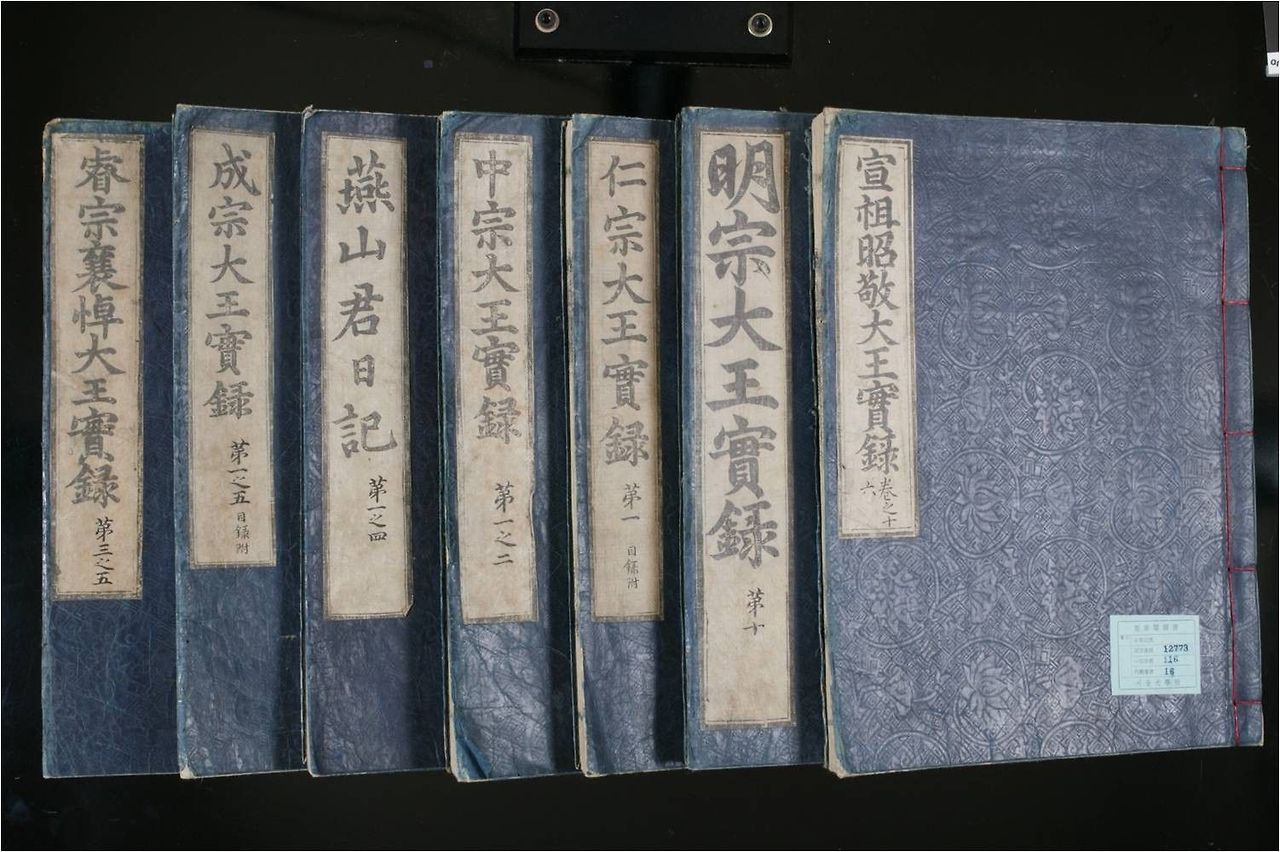 睿宗襄悼大王實録 第三之五
成宗大王實録 第一之五 目録附
燕山君日記 第一之四
中宗大王實録 第一之二
仁宗大王實録 第一 目録附
明宗大王實録 第十
宣祖昭敬大王實録 卷之十六
12773
116
16